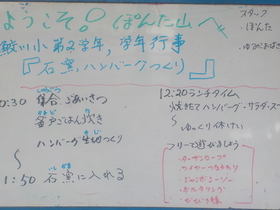 ようこそ。ぽんた山へ
スタッフ
・ぽんた
鮫川小 第2学年, 学年行事
『石窯ハンバーグつくり』
10:30 集合 ごあいさつ
釜戸ごはん炊き
ハンバーグ生地つくり
1:50 石窯に入れる
12:20 ランチタイム
焼きたてハンバーグ・サラダ・ス
ゆっくり休けい
フリーで遊びましょう
・ターザンロープ
・ボルダリング